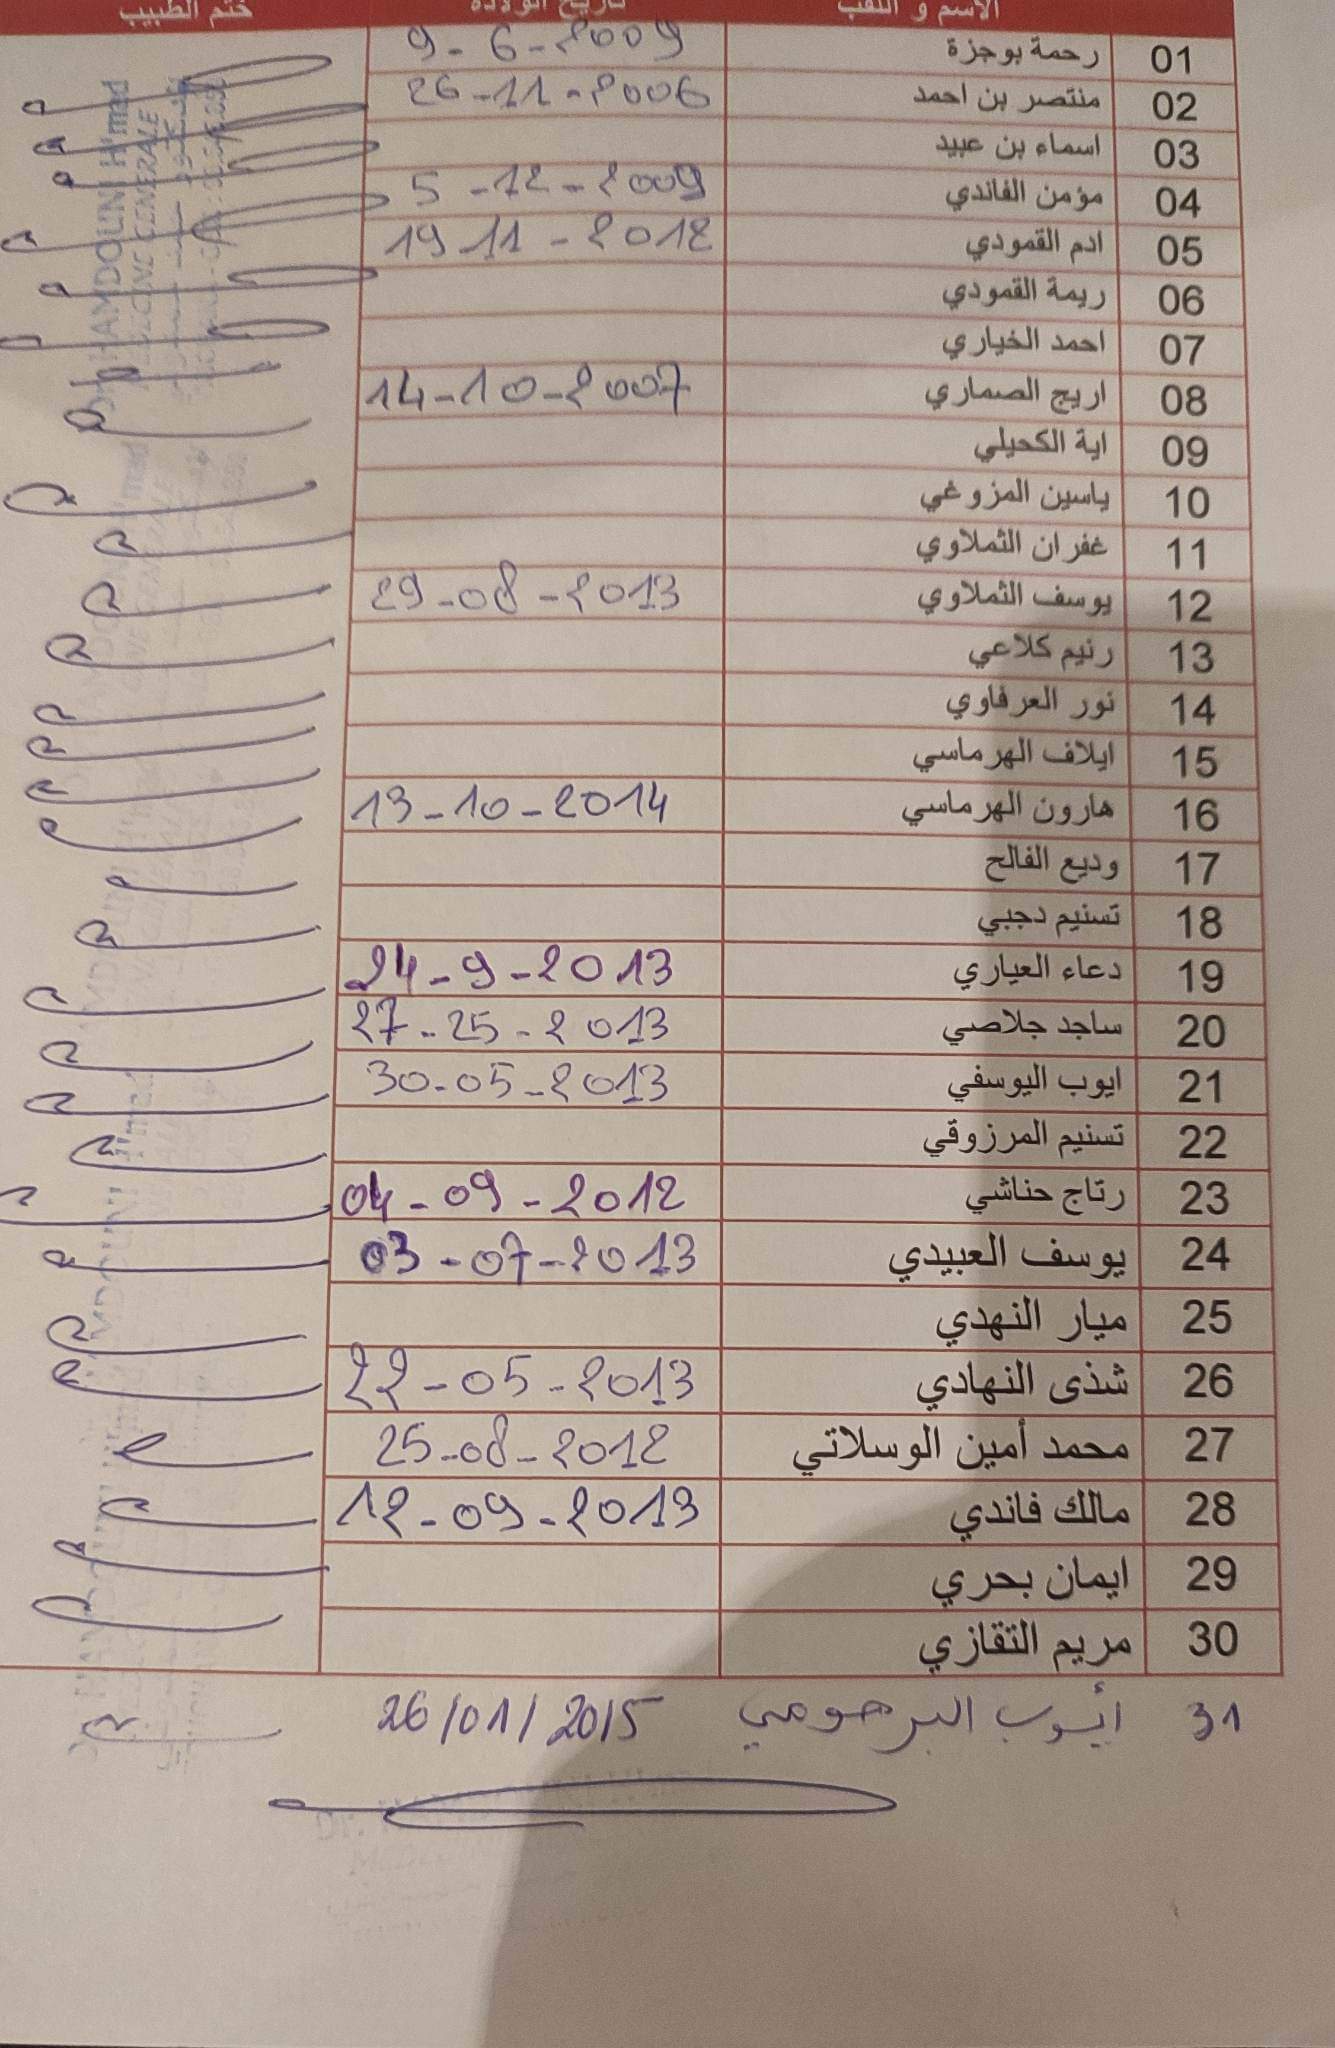 الاسم و اللقب تاريخ الولادة ختم الطبيب
01 رحمة بوجزة 9-6-2009
02 منتصر بن احمد 26-11-2006
03 اسماء بن عبيد
04 مؤمن الفاندي 5-12-2009
05 ادم القمودي 19 11-2012
06 ريمة القمودي
07 احمد الخياري
08 اريج الصماري 14-10-2007
09 اية الكحيلي
10 ياسين المزوغي
11 غفران الثملاوي
12 يوسف الثملاوي 29-08-2013
13 رنيم كلاعي
14 نور العرفاوي
15 ايلاف الهرماسي
16 هارون الهرماسي 13-10-2014
17 وديع الفالح
18 تسنيم دجبي
19 دعاء العياري 24-9-2013
20 ساجد جلاصي 27-25-2013
21 ايوب اليوسفي 30-05-2013
22 تسنيم المرزوقي
23 رتاج حناشي 04-09-2012
24 يوسف العبيدي 03-07-2013
25 ميار النهدي
26 شذى النهادي 22-05-2013
27 محمد أمين الوسلاتي 25-08-2012
28 مالك فاندي 12-09-2013
29 ايمان بحري
30 مريم التقازي
31 أيوب البرحومي 26/01/2015
HAMDOUNI H'med
MEDECINE GENERALE